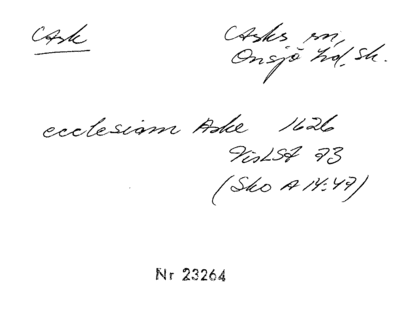 Ask
Asks sn,
Onsjö hd, Sk.
ecclesiam Aske 1626
VisLSt 73
(Sko A 14:47)
Nr 23264